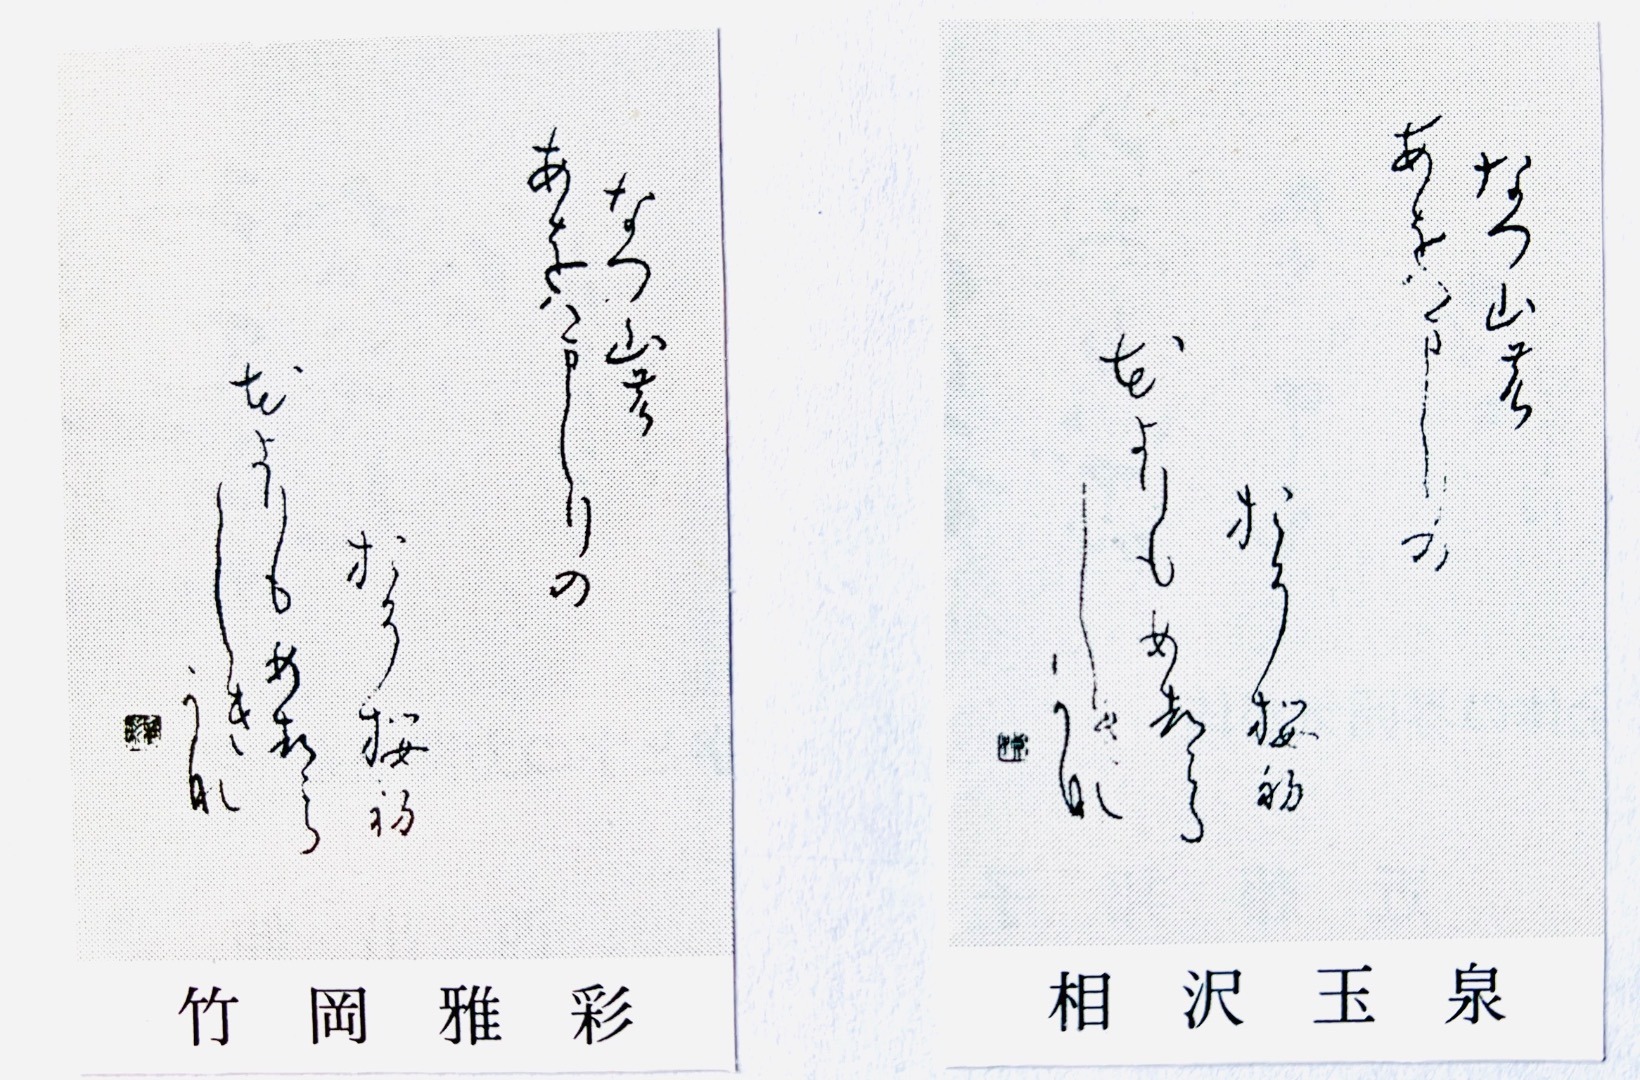 なつ山の
あをはましりの
おそ桜初
花よりもめつら
しき
かな
竹岡雅彩
なつ山の
あをはましりの
おそ桜初
花よりもめつら
しき
かな
相沢玉泉